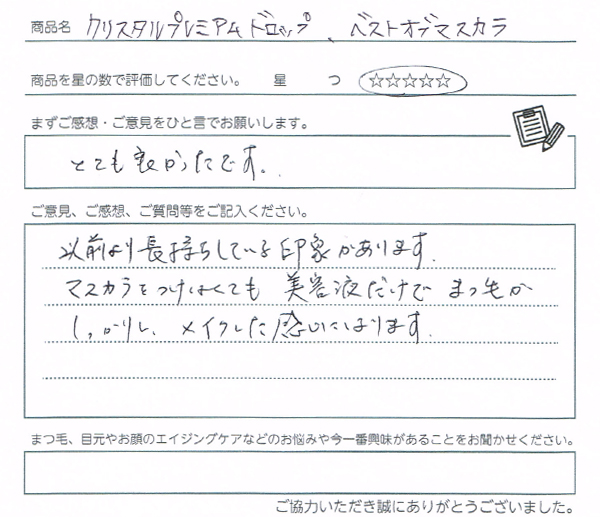 商品名 クリスタルプレミアムドロップ、ベストオブマスカラ
商品を星の数で評価してください。 星 つ ☆☆☆☆☆
まずご感想・ご意見をひと言でお願いします。
とても良かったです。
ご意見、ご感想、ご質問等をご記入ください。
以前より長持ちしている印象があります。
マスカラをつけなくても 美容液だけで まつ毛が
しっかりし、メイクした感じになります。
まつ毛、目元やお顔のエイジングケアなどのお悩みや今一番興味があることをお聞かせください。
ご協力いただき誠にありがとうございました。